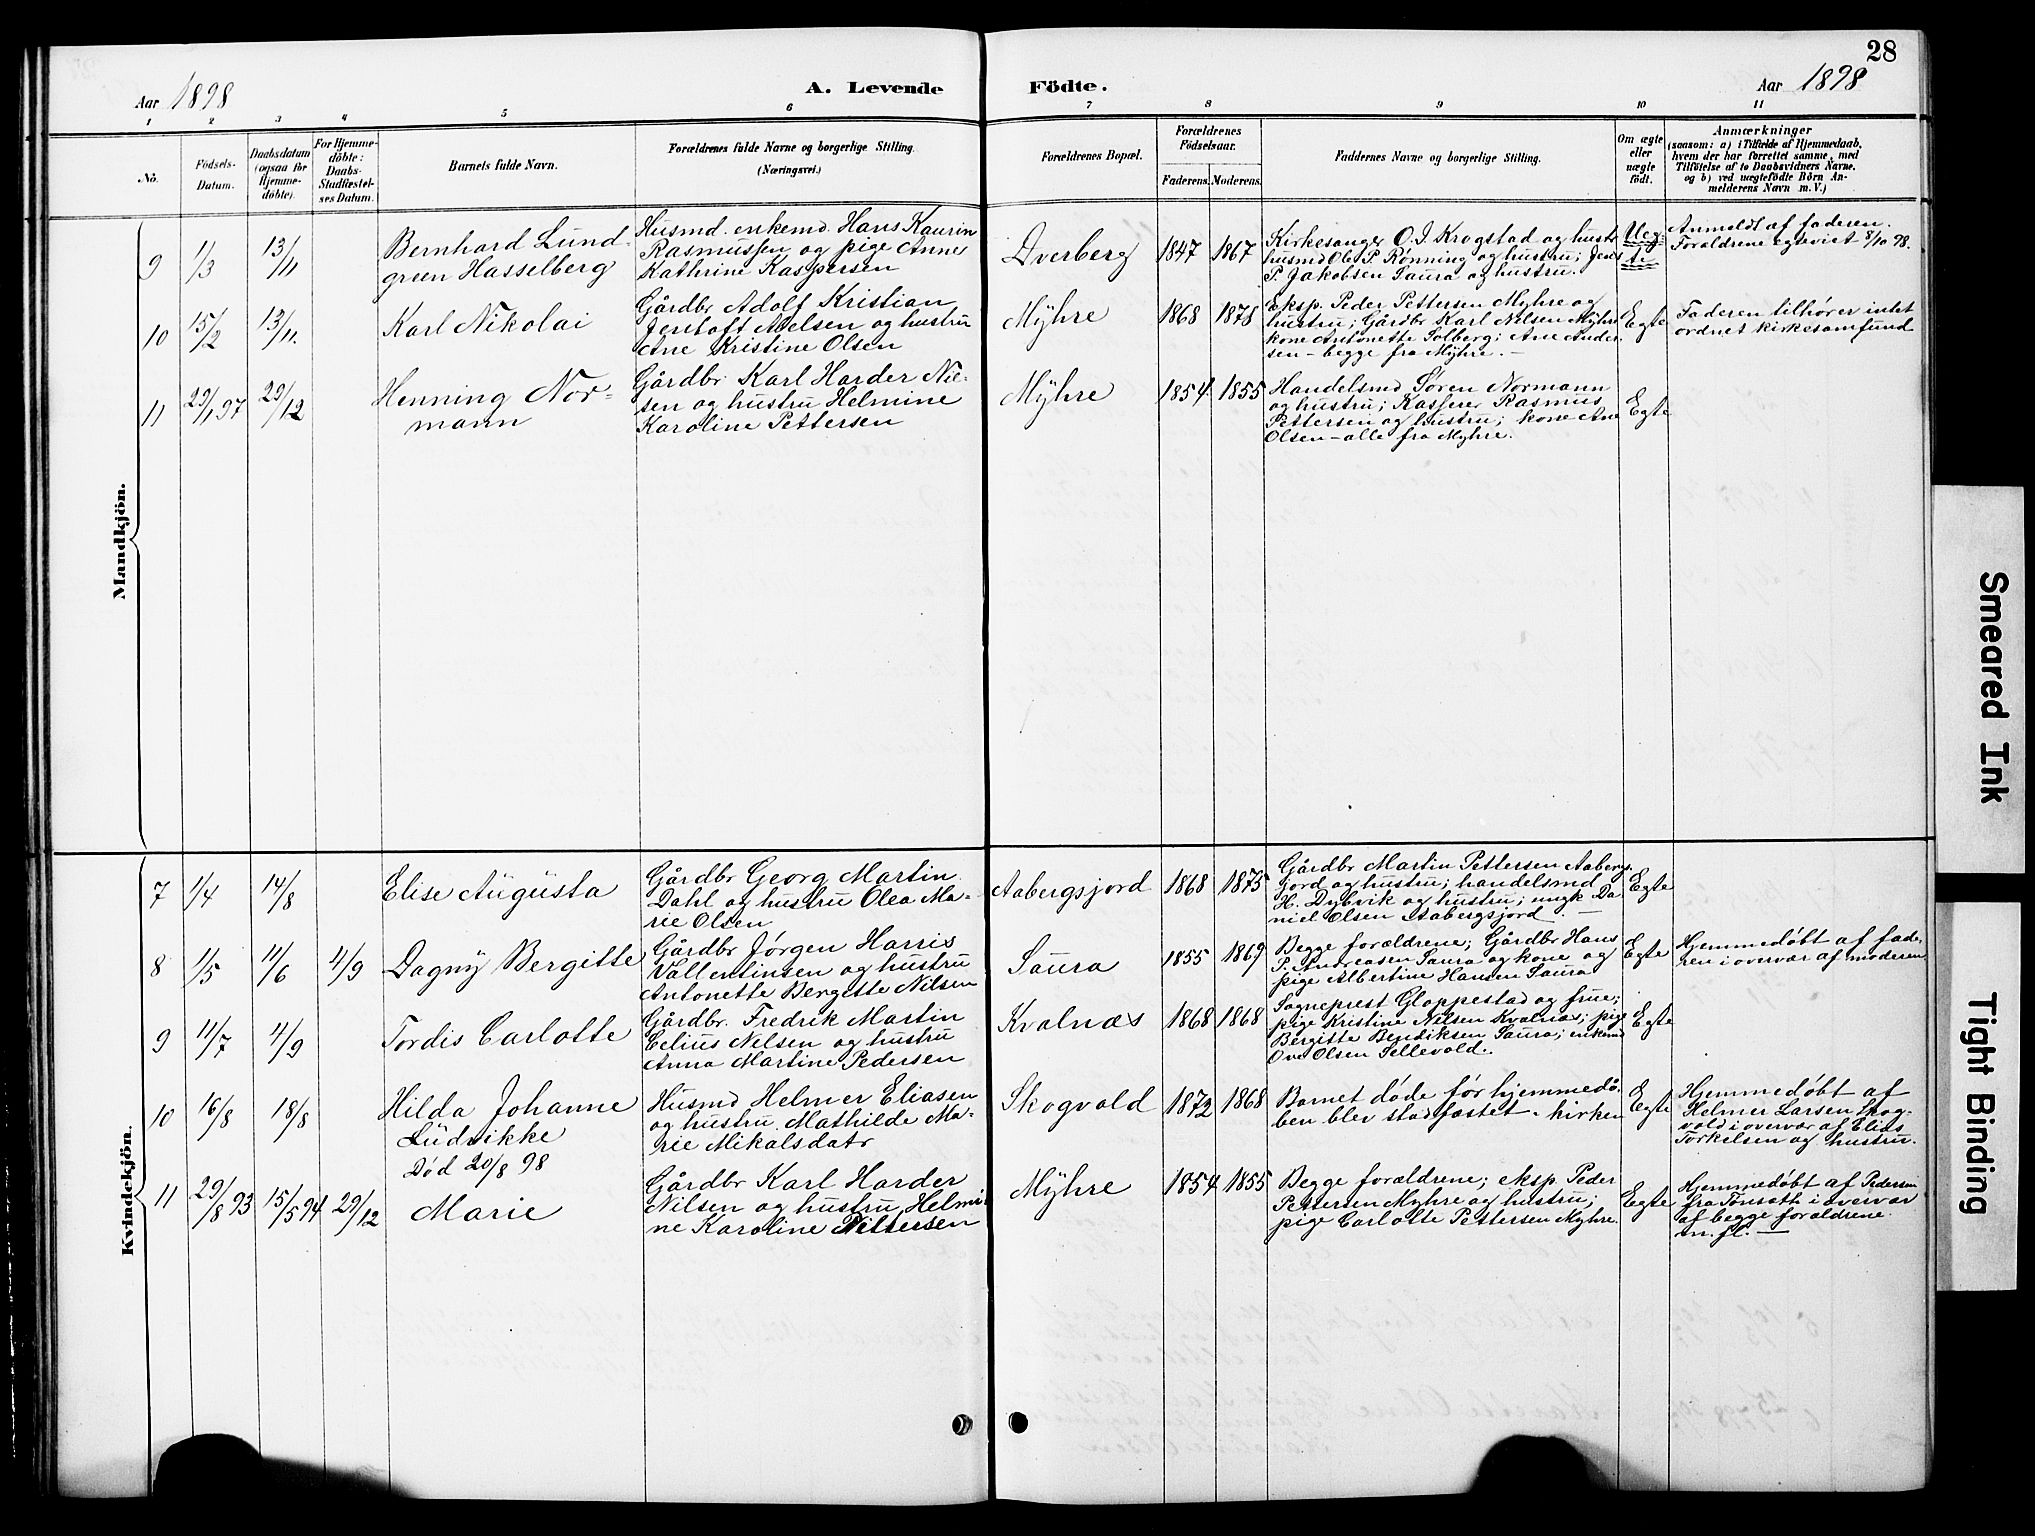 28
Aar 1898
A. Levende
Födte.
Aar 1898
1 2 3 4 5 6 7 8 9 10 11
No.
Födsels-
Datum.
Daabsdatum
(ogsaa for
Hjemme-
döbte).
For Hjemme-
döbte:
Daabs-
Stadfæstel-
ses Datum.
Barnets fulde Navn.
Forældrenes fulde Navne og borgerlige Stilling.
(Næringsvei.)
Forældrenes Bopæl.
Forældrenes
Födselsaar.
Faderens. Moderens.
Faddernes Navne og borgerlige Stilling.
Om ægte
eller
uægte
födt.
Anmærkninger
(saasom: a) i Tilfælde af Hjemmedaab,
hvem der har forrettet samme, med
Tilföielse af to Daabsvidners Navne,
og b) ved uægtefödte Börn An-
melderens Navn m. V.)
Mandkjön.
9
1/3
13/11
Bernhard Lund-
green Hasselberg
Husmd. enkemd. Hans Kaurin
Rasmussen og pige Anne
Kathrine Kaspersen
Dverberg
1847
1867
Kirkesanger O. J. Krogstad og hustr
husmd Ole P. Rønning og hustru; Jens
P. Jakobsen Saura og hustru.
Ueg-
te
Anmeldt af faderen.
Forældrene egteviet 8/10 98.
10
15/2
13/11.
Karl Nikolai
Gårdbr Adolf Kristian
Jentoft Nielsen og hustru
Ane Kristine Olsen
Myhre
1868
1878
Eksp. Peder Pettersen Myhre og
hustru; Gårdbr Karl Nilsen Myhre
kone Antonette Solberg; Ane Ander-
sen - begge fra Myhre. -
Egte
Faderen tilhører intet
ordnet kirkesamfund
11
29/1 97
29/12
Henning Nor-
mann
Gårdbr. Karl Harder Nil-
sen og hustru Helmine
Karoline Pettersen
Myhre
1854
1855
Handelsmd Søren Normann
og hustru; Kasserer Rasmus
Pettersen og hustru; kone Ane
Olsen - alle fra Myhre.
Egte
Kvindekjön.
7
1/4
14/8
Elise Augusta
Gårdbr Georg Martin
Dahl og hustru Olea Ma-
rie Olsen
Aabergsjord
1868
1875
Gårdbr Martin Pettersen Aabergs
jord og hustru; handelsmd
H. Dybvik og hustru; ungk Da
niel Olsen Aabergsjord. -
Egte
8
1/5
11/6
4/9
Dagny Bergitte
Gårdbr Jørgen Harris
Vallentinsen og hustru
Antonette Bergitte Nilsen
Saura
1855
1869
Begge forældrene; Gårdbr Hans
P. Andreasen Saura og kone og
pige Albertine Hansen Saura
Egte
Hjemmedøbt af fade-
ren i overvær af moderen
9
11/7
4/9
Tordis Carlotte
Gårdbr. Fredrik Martin
Celius Nilsen og hustru
Anna Martine Pedersen
Kvalnæs
1868
1868
Sogneprest Gloppestad og frue;
pige Kristine Nilsen Kvalnæs; pige
Bergitte Bendiksen Saura; enkemd
Ove Olsen Sellevold.
Egte
10
16/8
18/8
Hilda Johanne
Ludvikke
Død 20/8 98
Husmd Helmer Eliasen
og hustru Mathilde Ma-
rie Mikalsdatr
Skogvold
1872
1868
Barnet døde før hjemmedå-
ben blev stadfæstet i kirken
Egte
Hjemmedøbt af
Helmer Larsen Skog-
vold i overvær af Elias
Torkelsen og hustru.
11
29/8 93
15/5 94
29/12
Marie
Gårdbr Karl Harder
Nilsen og hustru Helmi-
ne Karoline Pettersen
Myhre
1854
1855
Begge forældrene; eksp. Peder
Pettersen Myhre og hustru;
pige Carlotte Pettersen Myhre
Egte
Hjemmedøbt af Pedersen
fra i overvær
af begge forældrene
m. fl. -
Smeared Ink
Tight Binding